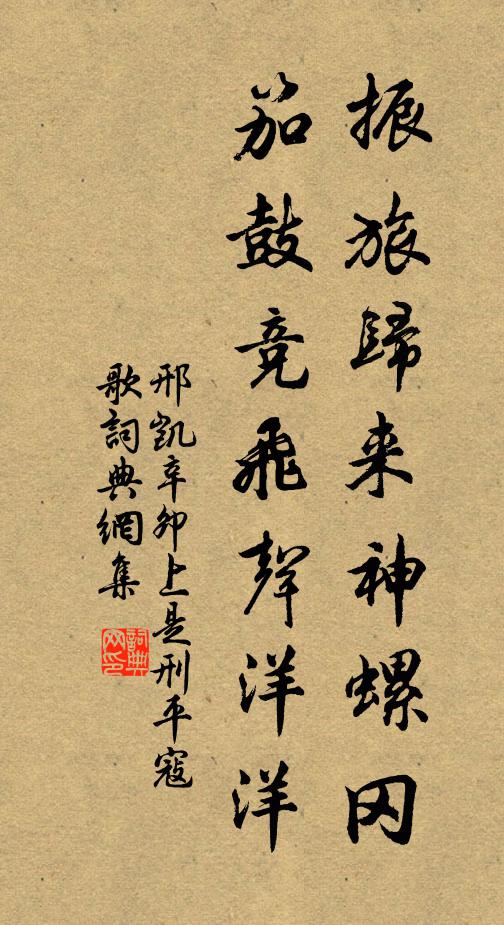 振旅歸来神螺冈
笳鼓竞飛聲洋洋
邢凱辛卯上是刑平寇
歌詞典網集
詞典网印